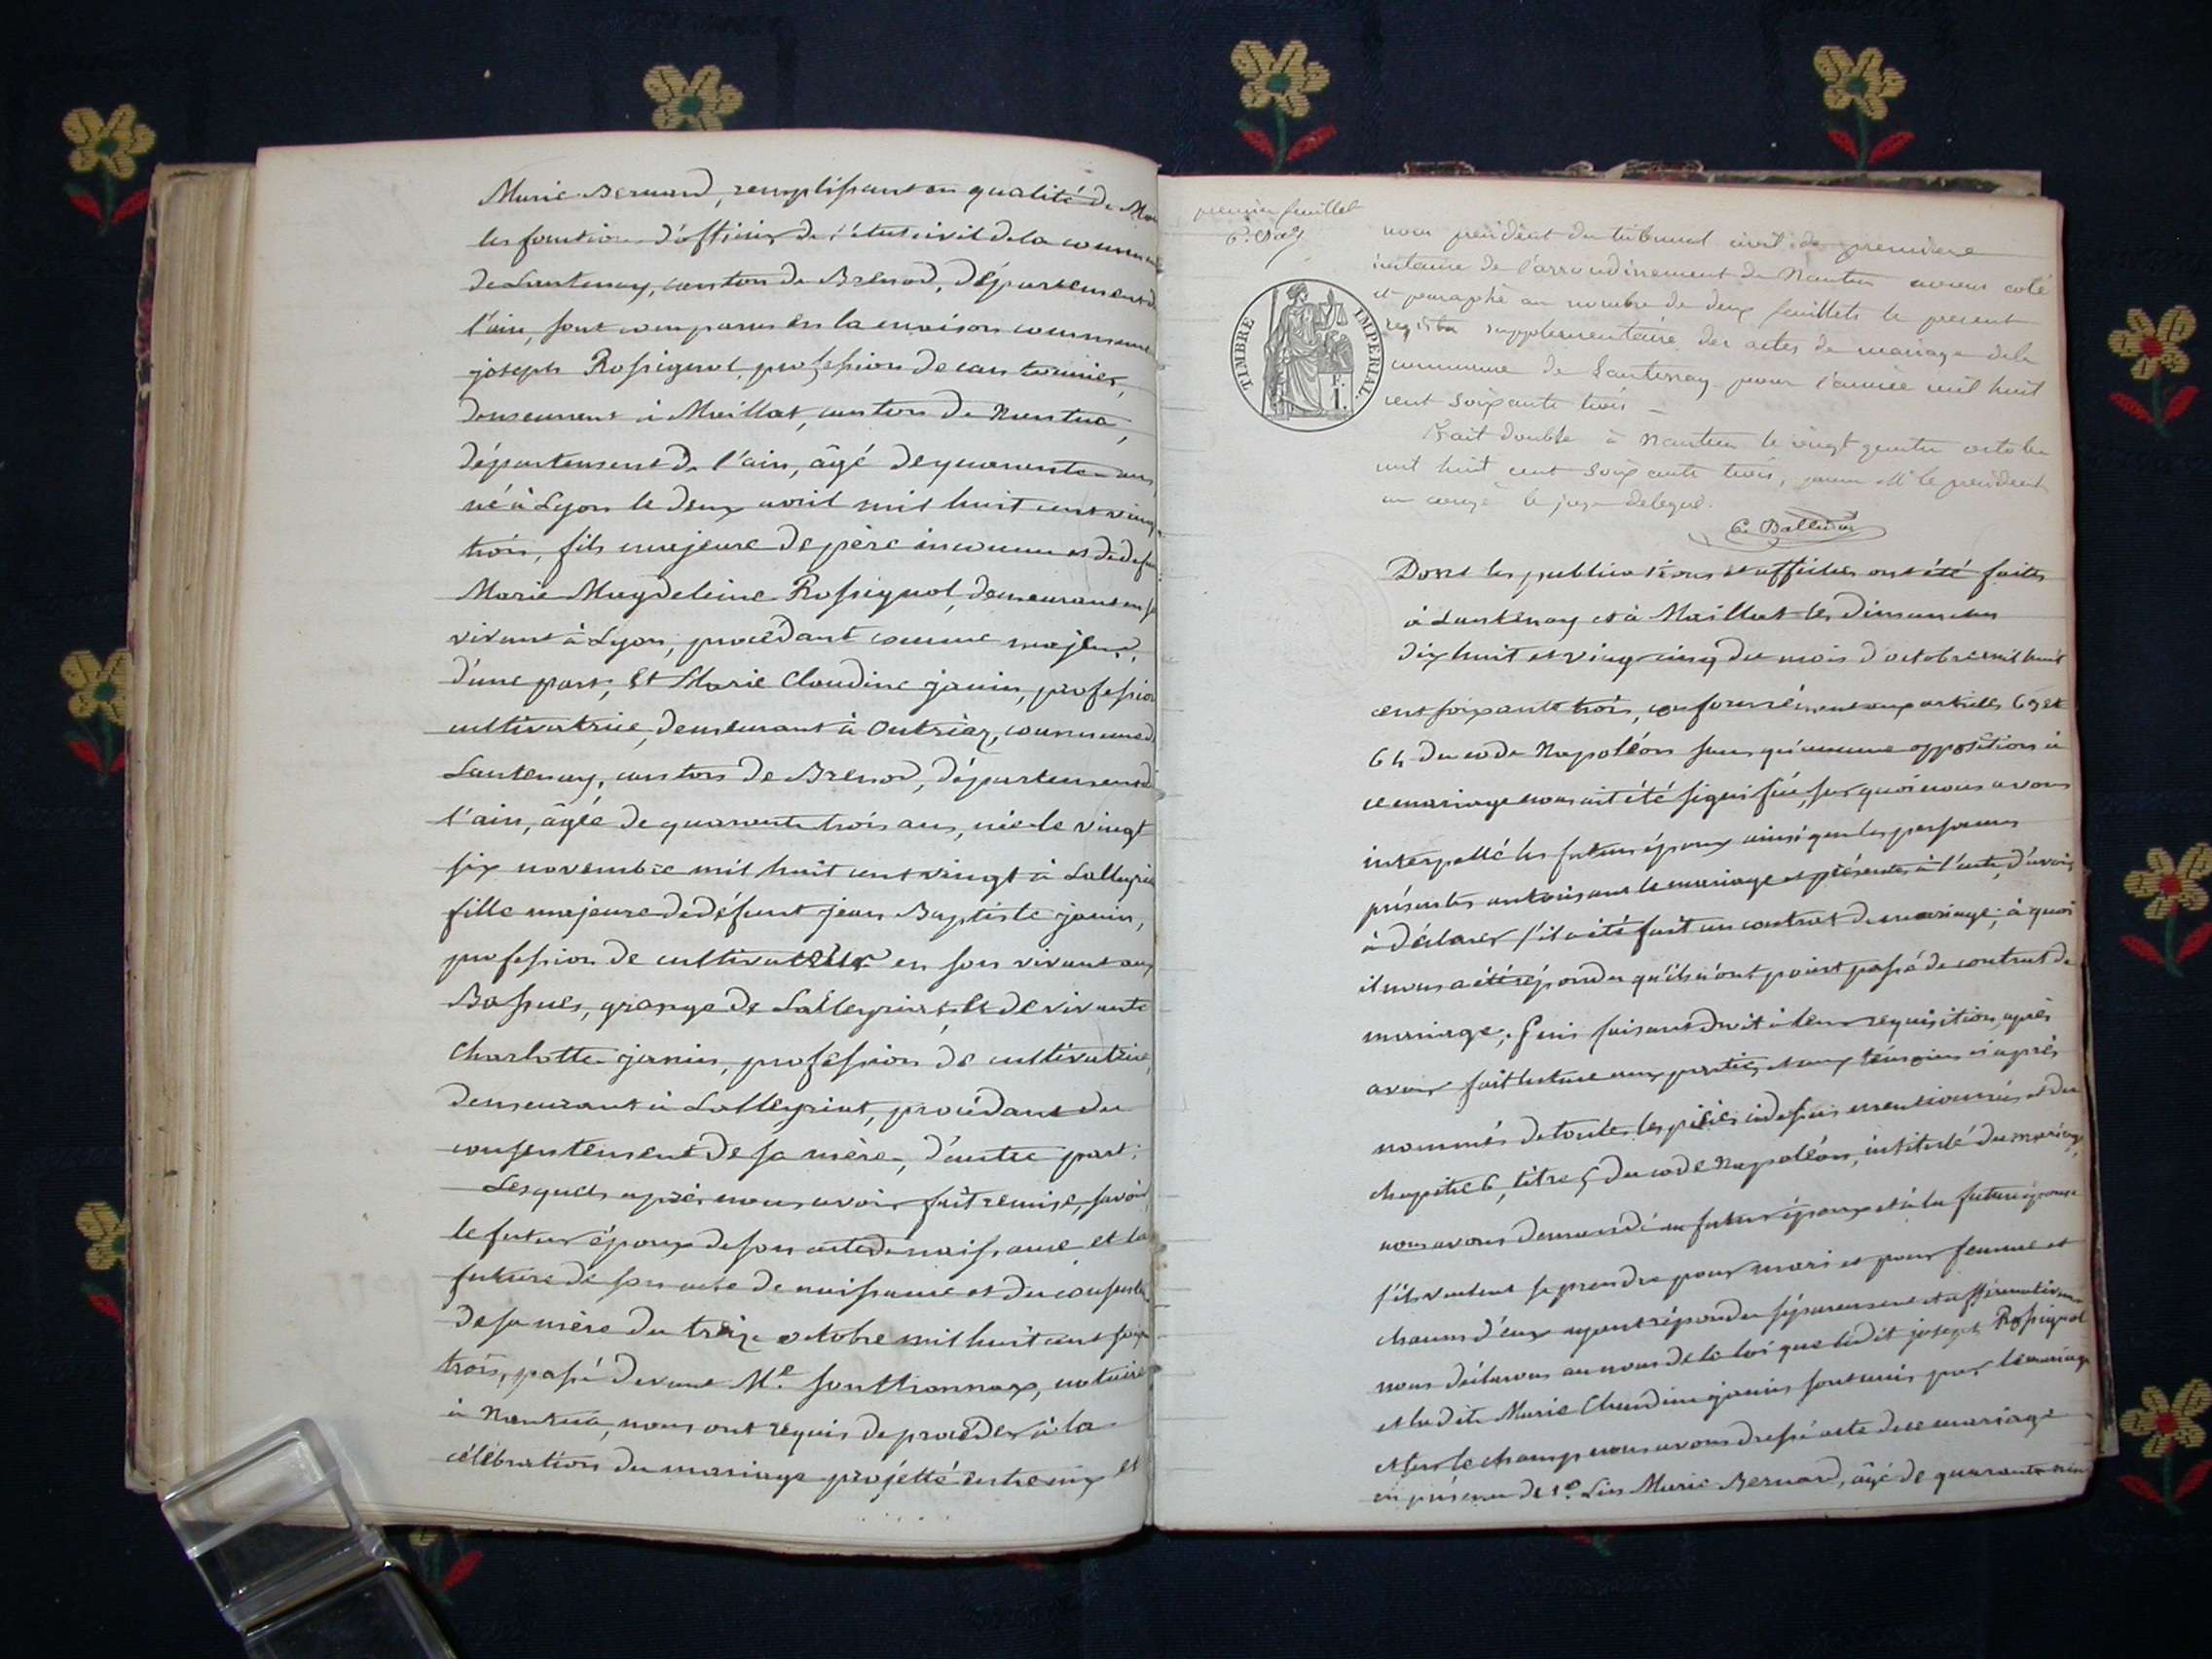 Marie Bernard, remplissant en qualité de
les fonctions d'officier de l'état civil de la commune
de Lantenay, canton de Brenod, Département de
l'ain, sont comparus en la maison commune,
joseph Rossignol, profession de cantonnier,
demeurant à Maillat, canton de Nantua,
département de l'ain, âgé de quarante ans,
né à Lyon le deux avril mil huit cent vingt
trois, fils majeure de père inconnu et de
Marie Magdeleine Rossignol, demeurant en
vivant à Lyon, procédant comme majeur,
d'une part, Et Marie Claudine janin, profession
cultivatrice, demeurant à Outriaz, commune de
Lantenay, canton de Brenod, département de
l'ain, âgée de quarante trois ans, née le vingt
six novembre mil huit cent vingt à Lalleyriat
fille majeure de défunt jean Baptiste janin,
profession de cultivateur en son vivant aux
grange de Lalleyriat, et de vivante
Charlotte janin, profession de cultivatrice,
demeurant à Lalleyriat, procédant du
consentement de sa mère, d'autre part;
Lesquels après nous avoir fait remise, savoir
le futur époux de son acte de naissance et la
future de son acte de naissance et du
de sa mère du treize octobre mil huit cent
trois, passé devant Me notaire
à Nantua, nous ont requis de procéder à la
célébration du mariage projetté entre eux et
premier feuillet
TIMBRE IMPERIAL.
1 F.
nous président du tribunal civil de premiere
instance de l'arrondissement de Nantua avons coté
et paraphé au nombre de deux feuillets le present
registre supplementaire des actes de mariage de la
commune de Lantenay pour l'année mil huit
cent soixante trois
Fait double à Nantua le vingt quatre octobre
mil huit cent soixante trois, pour Mr le président
en congé le juge delegué.
Dont les publications et affiches ont été faites
à Lantenay et à Maillat les dimanches
dix huit et vingt cinq du mois d'octobre mil huit
cent soixante trois, conformément aux articles 63 et
64 du code Napoléon sans qu'aucune opposition à
ce mariage nous ait été signifiée, sur quoi nous avons
interpellé les futurs époux ainsi que les personnes
présentes autorisant le mariage et présentes à l'acte, d'avoir
à déclarer s'il a été fait un contrat de mariage; à quoi
il nous a été répondu qu'ils n'ont point passé de contrat de
mariage; Puis faisant droit à leur requisition, après
avoir fait lecture aux parties et aux témoins ci après
nommés de toutes les pièces ci dessus mentionnées et du
chapitre 6, titre 5 du code Napoléon, intitulé du mariage,
nous avons demandé au futur époux et à la future épouse
s'ils veulent se prendre pour mari et pour femme et
chacun d'eux ayant répondu séparement et affirmativement
nous déclarons au nom de la loi que ledit joseph Rossignol
et ladite Marie Claudine janin sont unis par le mariage
et sur le champ nous avons dressé acte de ce mariage
en présence de 1° Marie Bernard, âgé de quarante